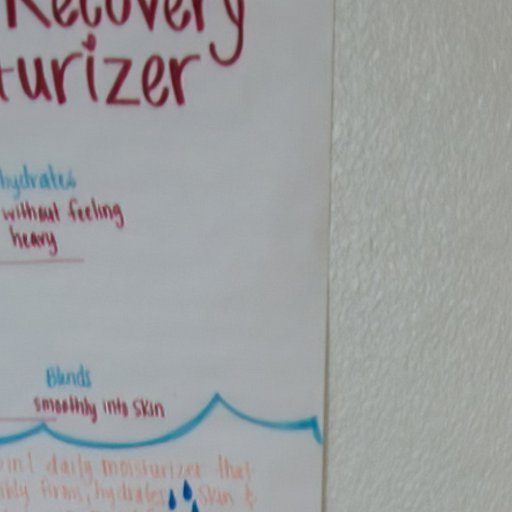 Recovery
turizer
hydrates
without feeling
heavy
Blends
smoothly into skin
in 1 daily moisturizer that
bly firms, hydrates, skin &